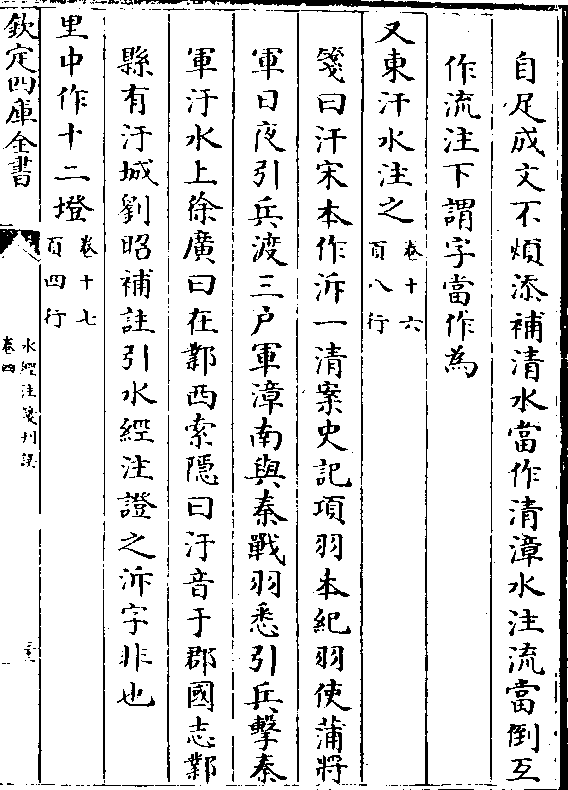 自足成文不煩添補清水當作清漳水注流當倒互
作流注下謂字當作為
又東汙水注之卷十六
頁八行
箋曰汙宋本作泝一清案史記項羽本紀羽使蒲將
軍日夜引兵渡三户軍漳南與秦戰羽悉引兵擊秦
軍汙水上徐廣曰在鄴西索隱曰汙音于郡國志鄴
縣有汙城劉昭補註引水經注證之泝字非也
里中作十二墱卷十七
頁四行
欽定四庫全書
水經注箋刊誤
卷四